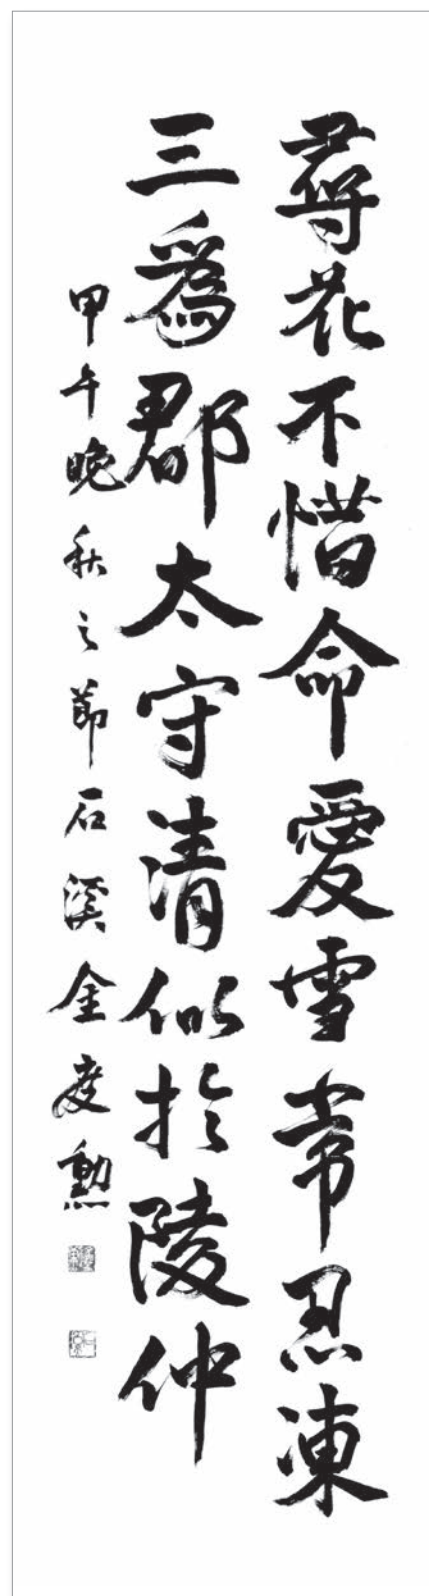 尋花不惜命愛雪常忍凍
三爲郡太守清似於陵仲
甲午晚秋之節石溪金度勳